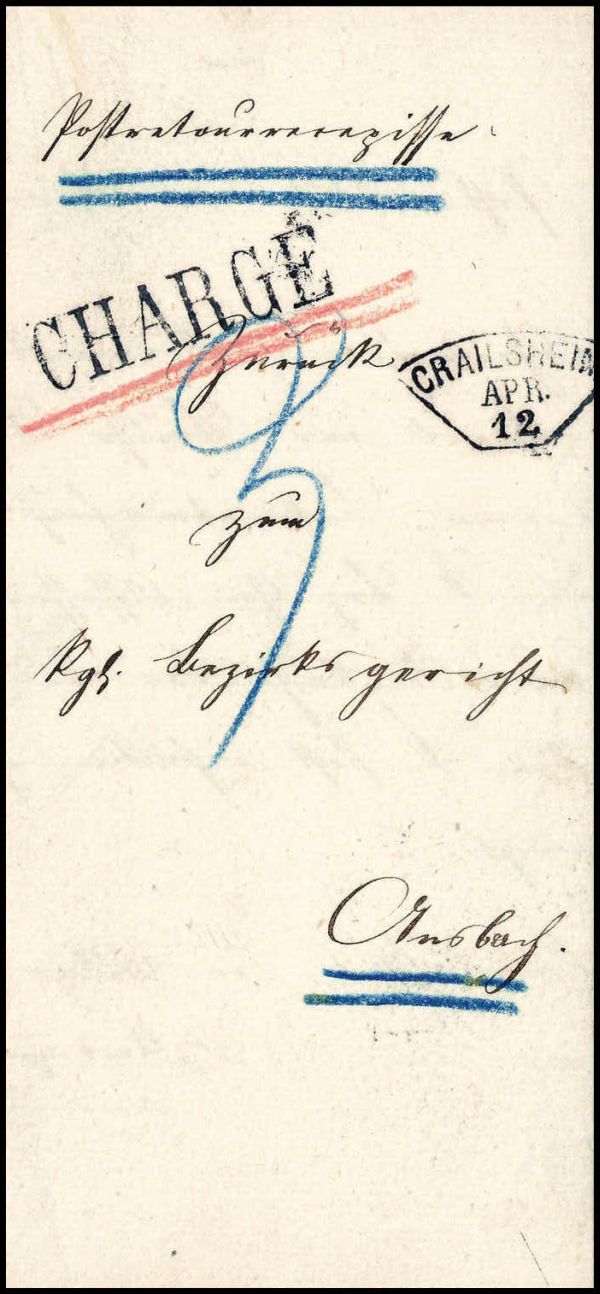 Postretourrecepisse.
CHARGÉ
Zurück
CRAILSHEIM
APR.
12
3
zum
kgl. Bezirksgericht
Ansbach.